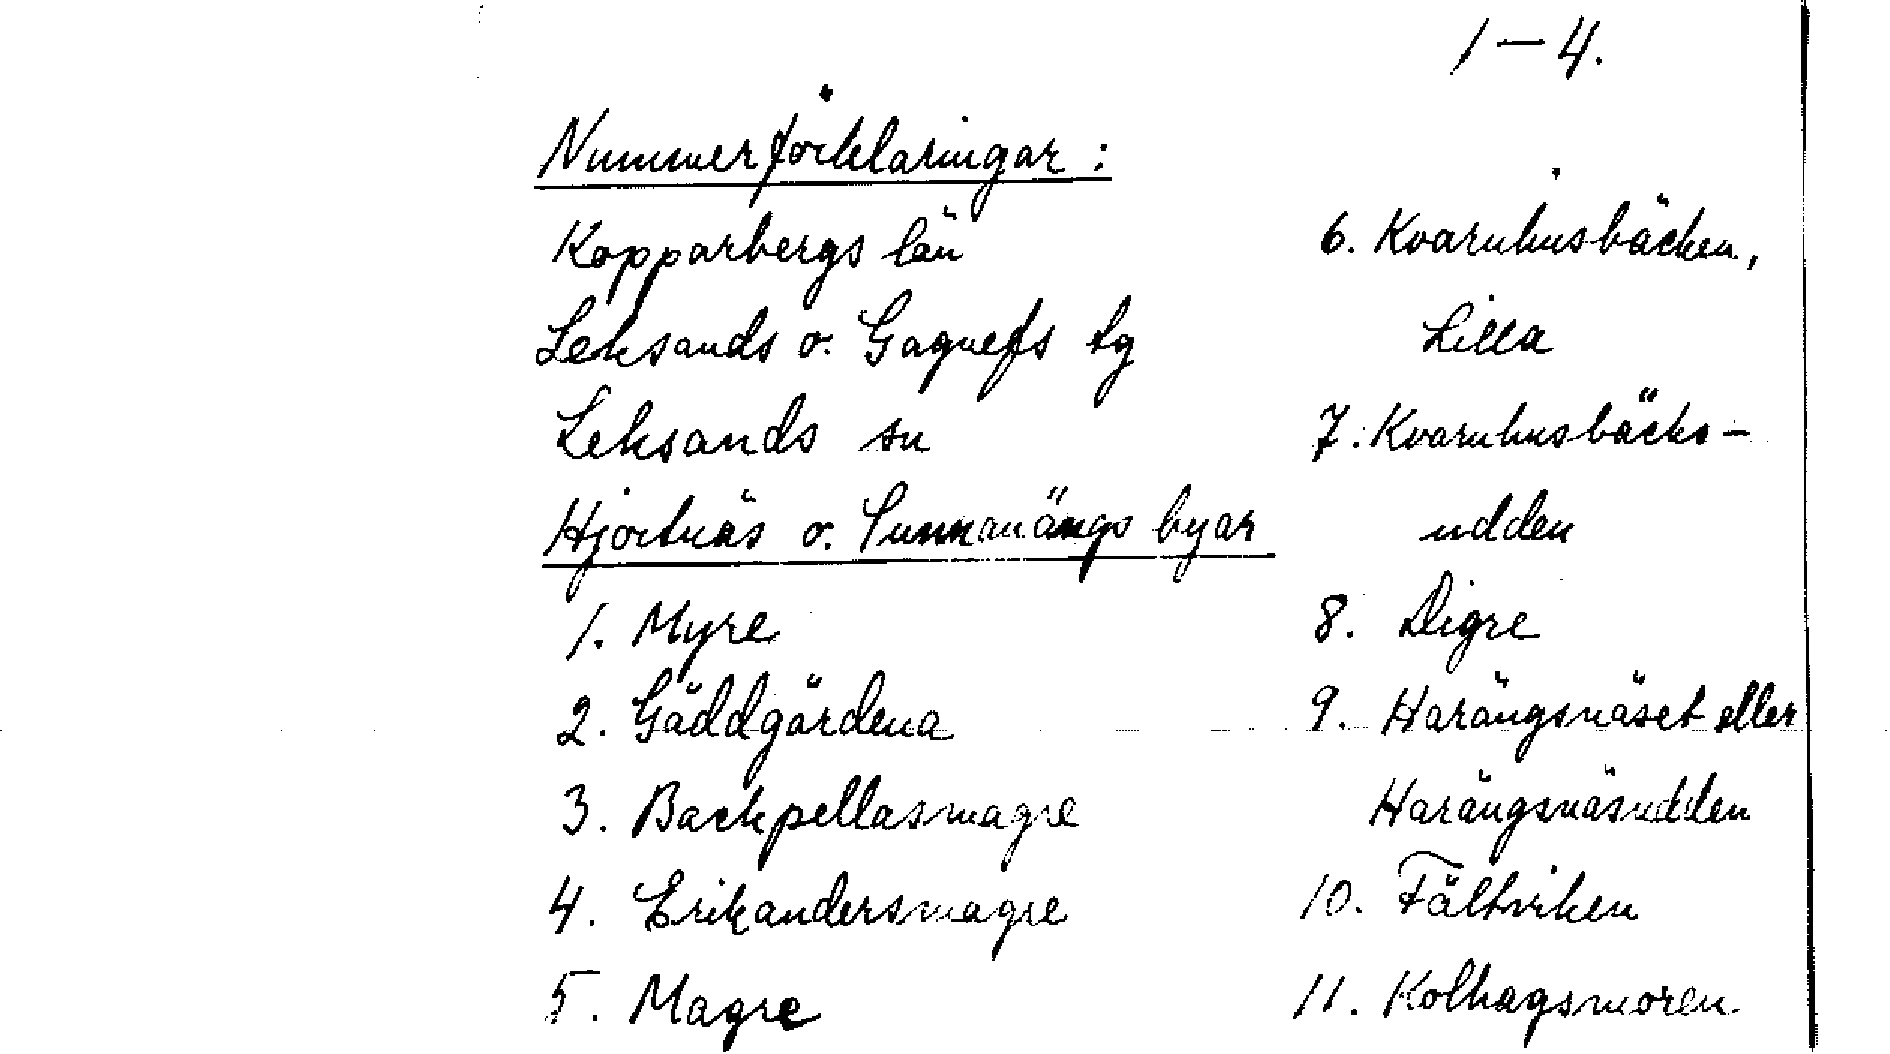 1-4.
Nummerförklaringar:
Kopparbergs län
Leksands o. Gagnefs tg
Leksands sn
Hjortnäs o. Sunnanängs byar
1. Myre
2. Gäddgärdena
3. Backpellasmagre
4. Erikandersmagre
5. Magre
6. Kvarnhusbäcken,
Lilla
7. Kvarnhusbäcks-
udden
8. Digre
9. Harängsnäset eller
Harängsnäsudden
10. Fältviken
11. Kolhagsmoren